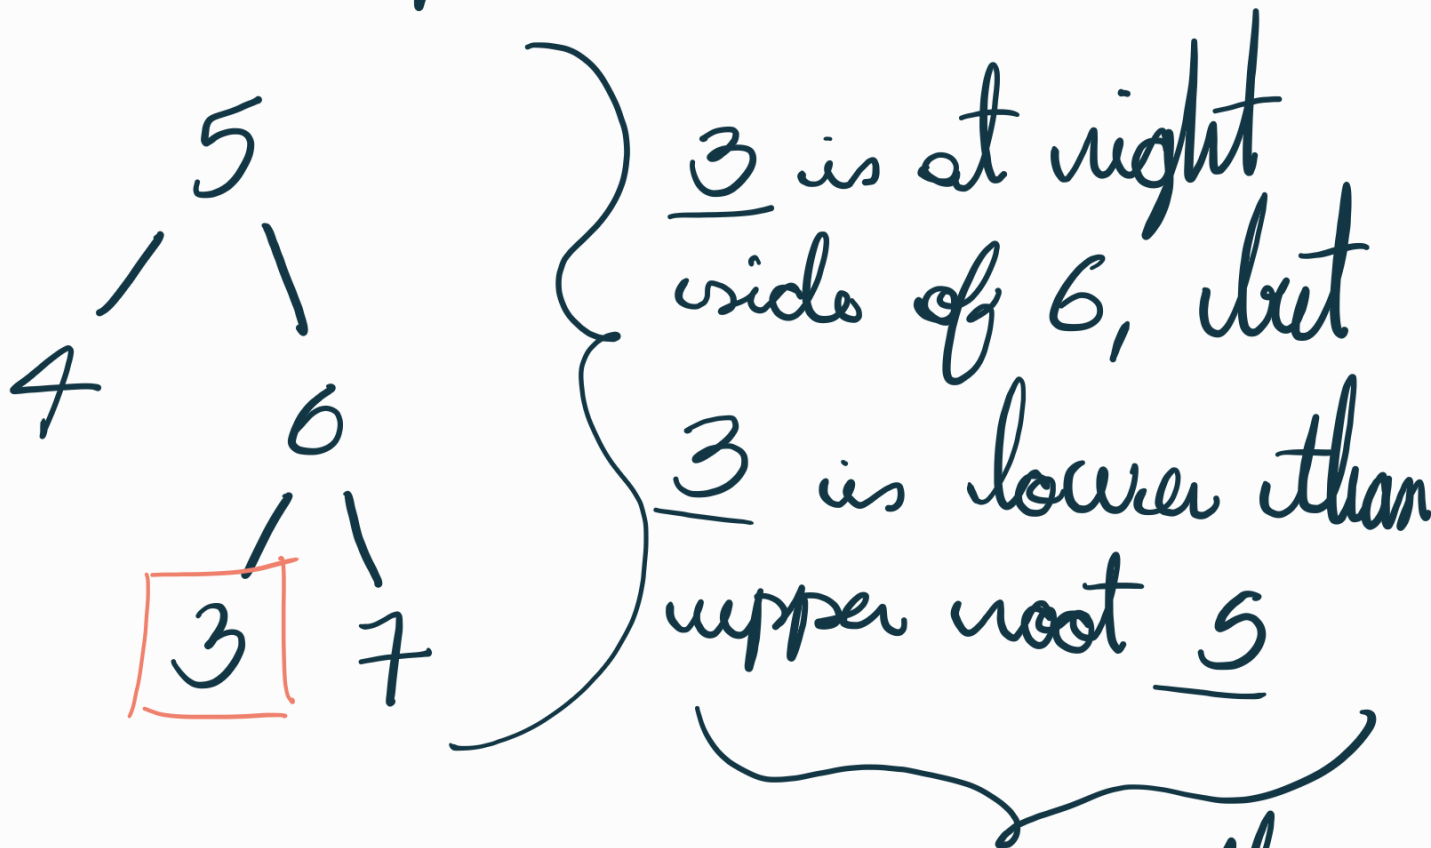 5
4
6
3
7
3 is at right
side of 6, but
3 is lower than
upper root 5